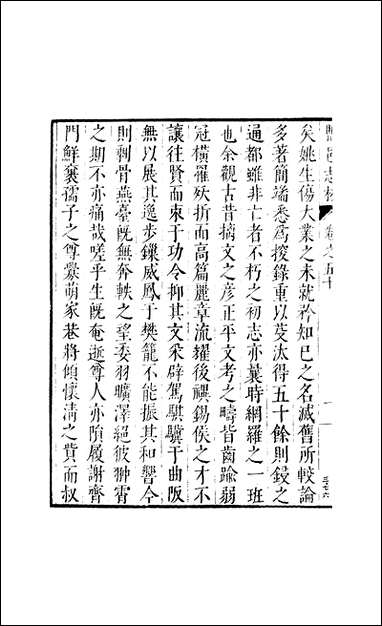 矣姚生傷大業之未就矜知已之名滅舊所較論
多著簡端悉爲挍錄重以芟汰得五十餘則鋟之
通都雖非亡者不朽之初志亦曩時網羅之一班
也余觀古昔摛文之彦正平文考之疇皆齒踰弱
冠橫罹殀折而高篇麗章流耀後禩錫侯之才不
讓往賢而束于功令抑其文采辟駕騏驥于曲阪
無以展其逸步鏁威鳳于樊籠不能振其和響今
則剩骨燕臺旣無奔軼之望委羽曠澤絕彼翀霄
之期不亦痛哉嗟乎生旣奄逝尊人亦隕履謝齊
門鮮褎孺子之尊爨萌家巷將傾懷清之貲而叔
卷之五十
三七六